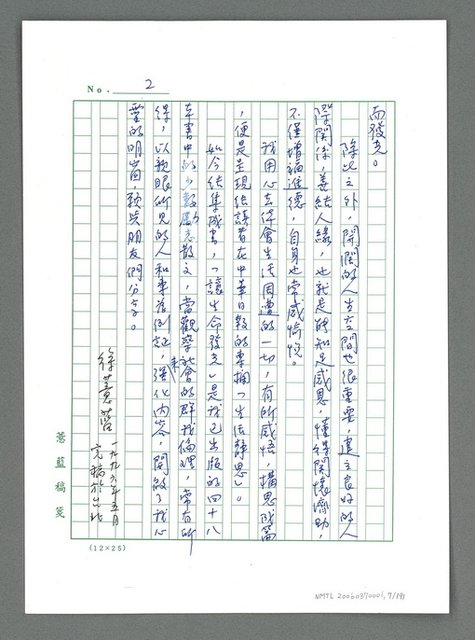 No. 2
而發光。
除此之外,開闊的人生空間也很重要,建立良好的人
際關係,善結人緣,也就是能知足感恩,懂得關懷濟助,
不僅增福進德,自身也常感愉悅。
我用心去体會生活周遭的一切,有所感悟,構思成篇
,便是呈現給讀者在中華日報的專欄「生活靜思」。
如今結集成書,「讓生命發光」是我已出版的四十八
本書中的少數勵志散文,當觀察社會的群我倫理,常有所
得,以親眼所見的人和事為例證,來強化內容,開啟了我心
靈的明窗,願與朋友們分享。
徐薏藍 一九九六年五月
完稿於台北
薏藍稿箋
(12×25)
NMTL 20060370001, 7/191